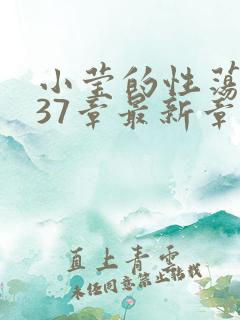 小莹的性荡
37章最新章
直上青云
未经同意禁止转载